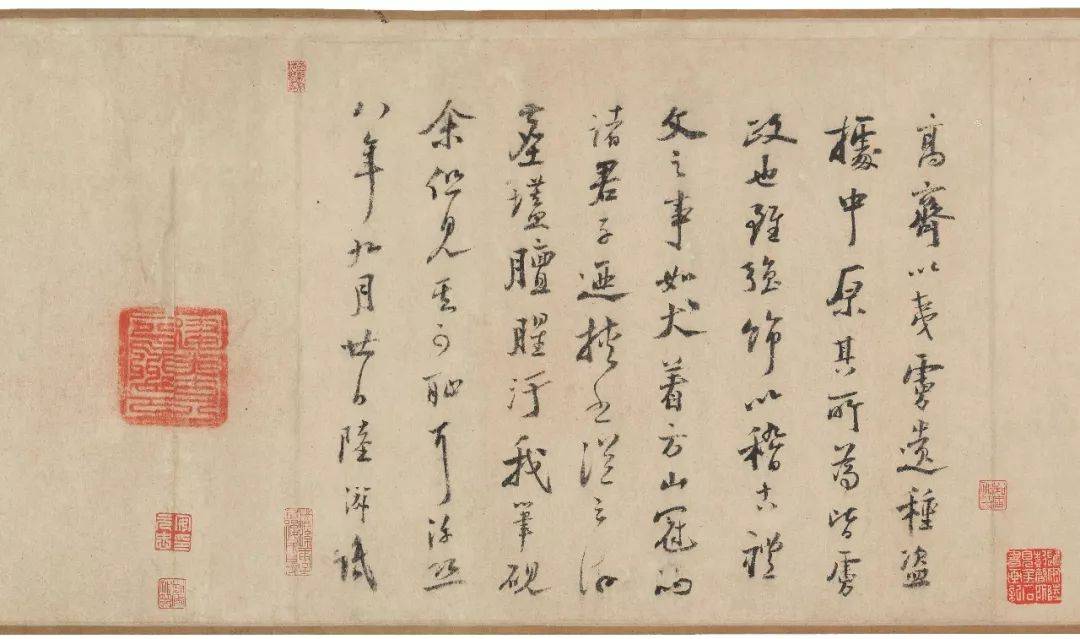 高齊以夷虜遺種盜
據中原其所爲皆虜
政也雖強飾以稽古禮
文之事如犬着方山冠而
諸君子迺挾書從之游
塵壒膻腥汙我筆硯
余但見其可恥耳淳熙
八年九月廿日陸游識